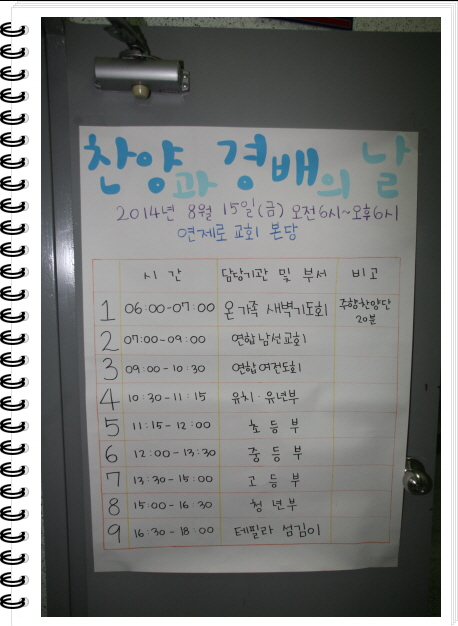 찬양과 경배의 날
2014년 8월 15일(금) 오전6시~오후6시
연제로교회 본당
시 간 담당기관 및 부서 비고
1 06:00-07:00 온가족 새벽기도회 주향찬양단 20분
2 07:00-09:00 연합남선교회
3 09:00-10:30 연합여전도회
4 10:30-11:15 유치·유년부
5 11:15-12:00 초등부
6 12:00-13:30 중등부
7 13:30-15:00 고등부
8 15:00-16:30 청년부
9 16:30-18:00 테필라 섬김이